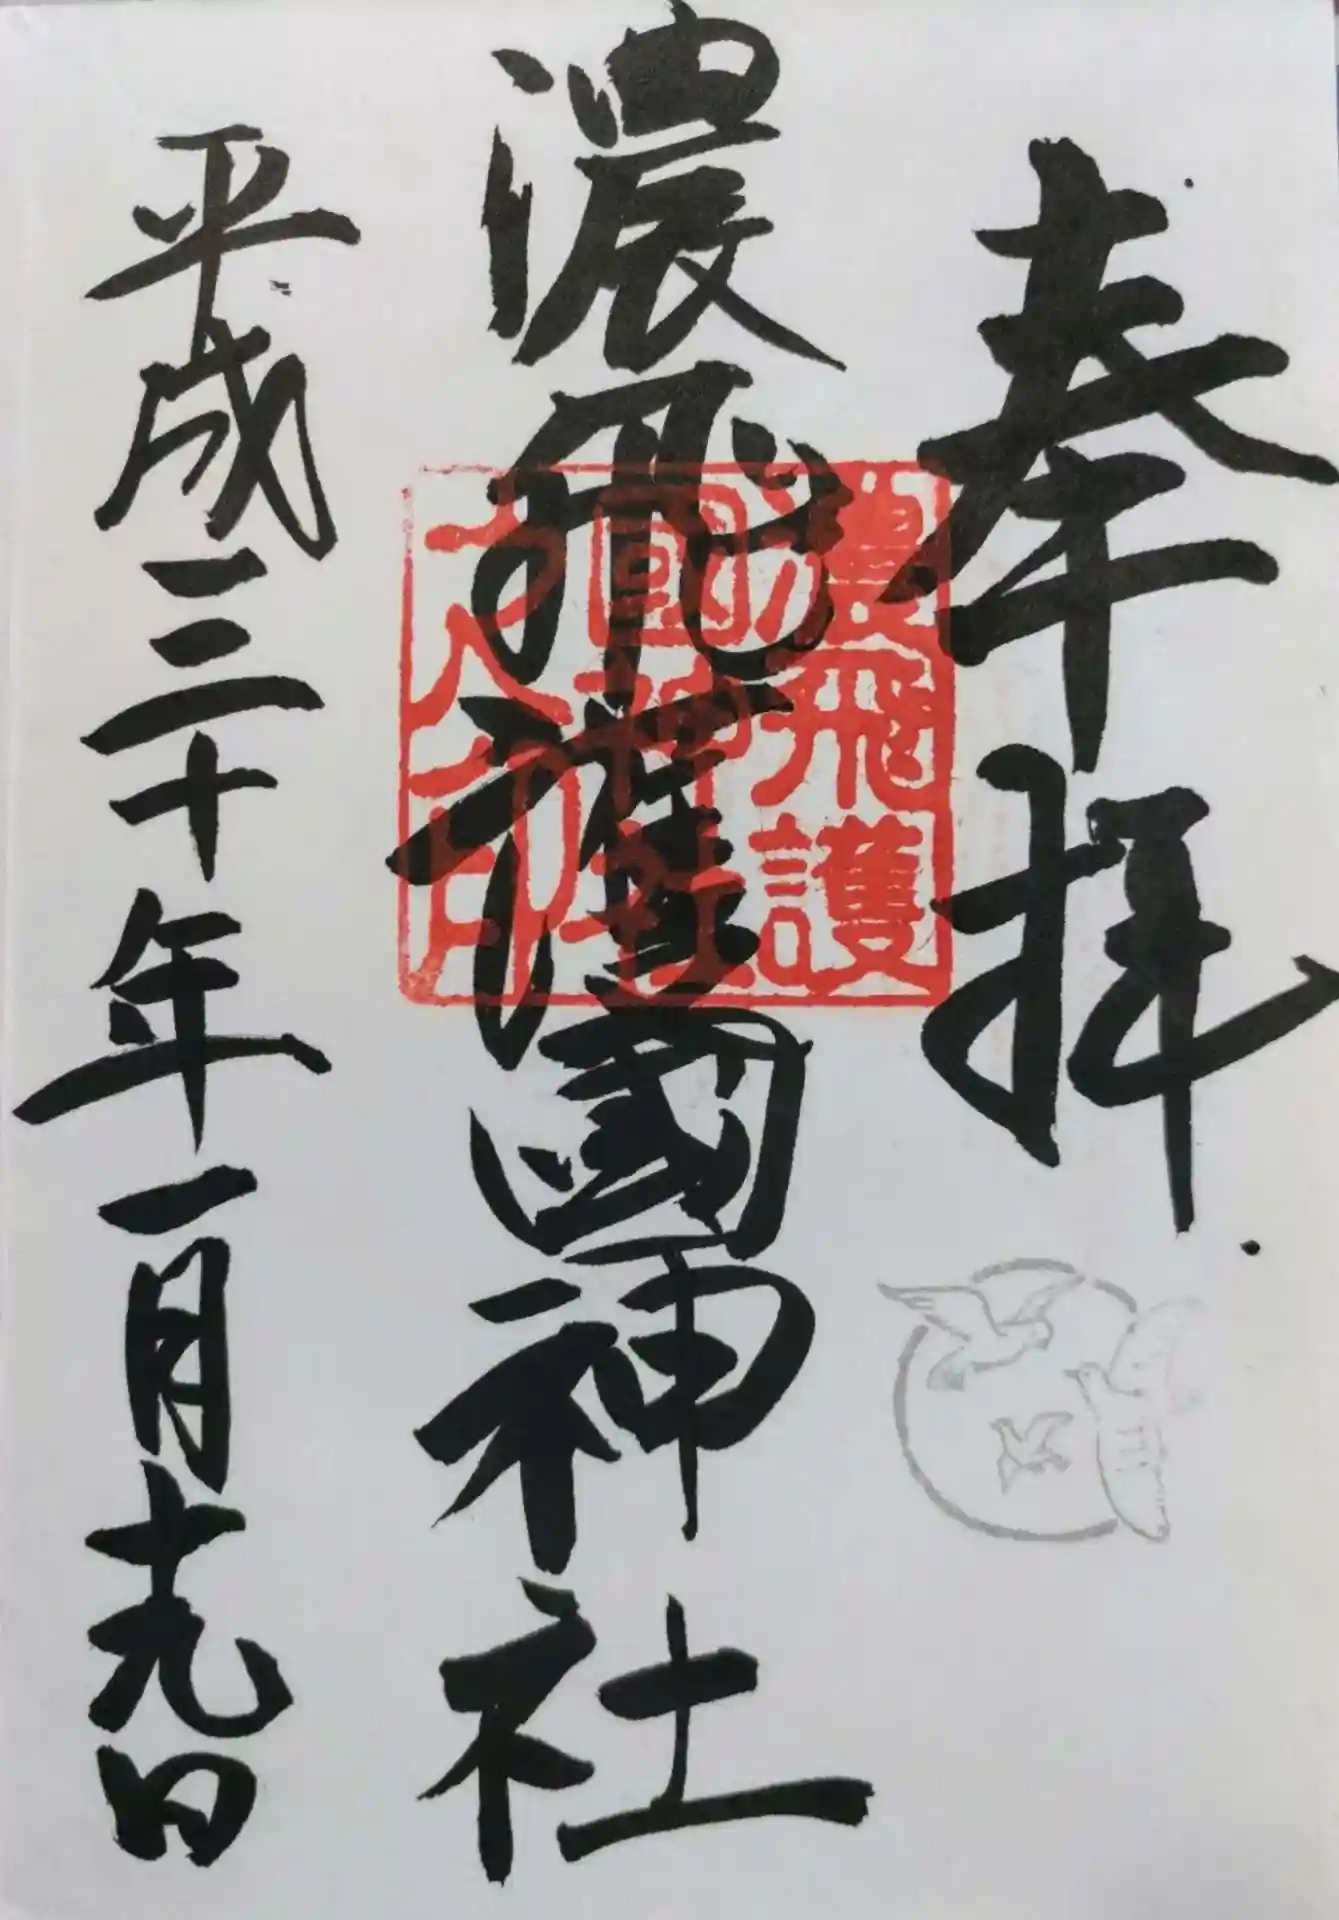 奉拝
濃飛護國神社
平成三十年一月十九日
濃飛護
國神社
之印